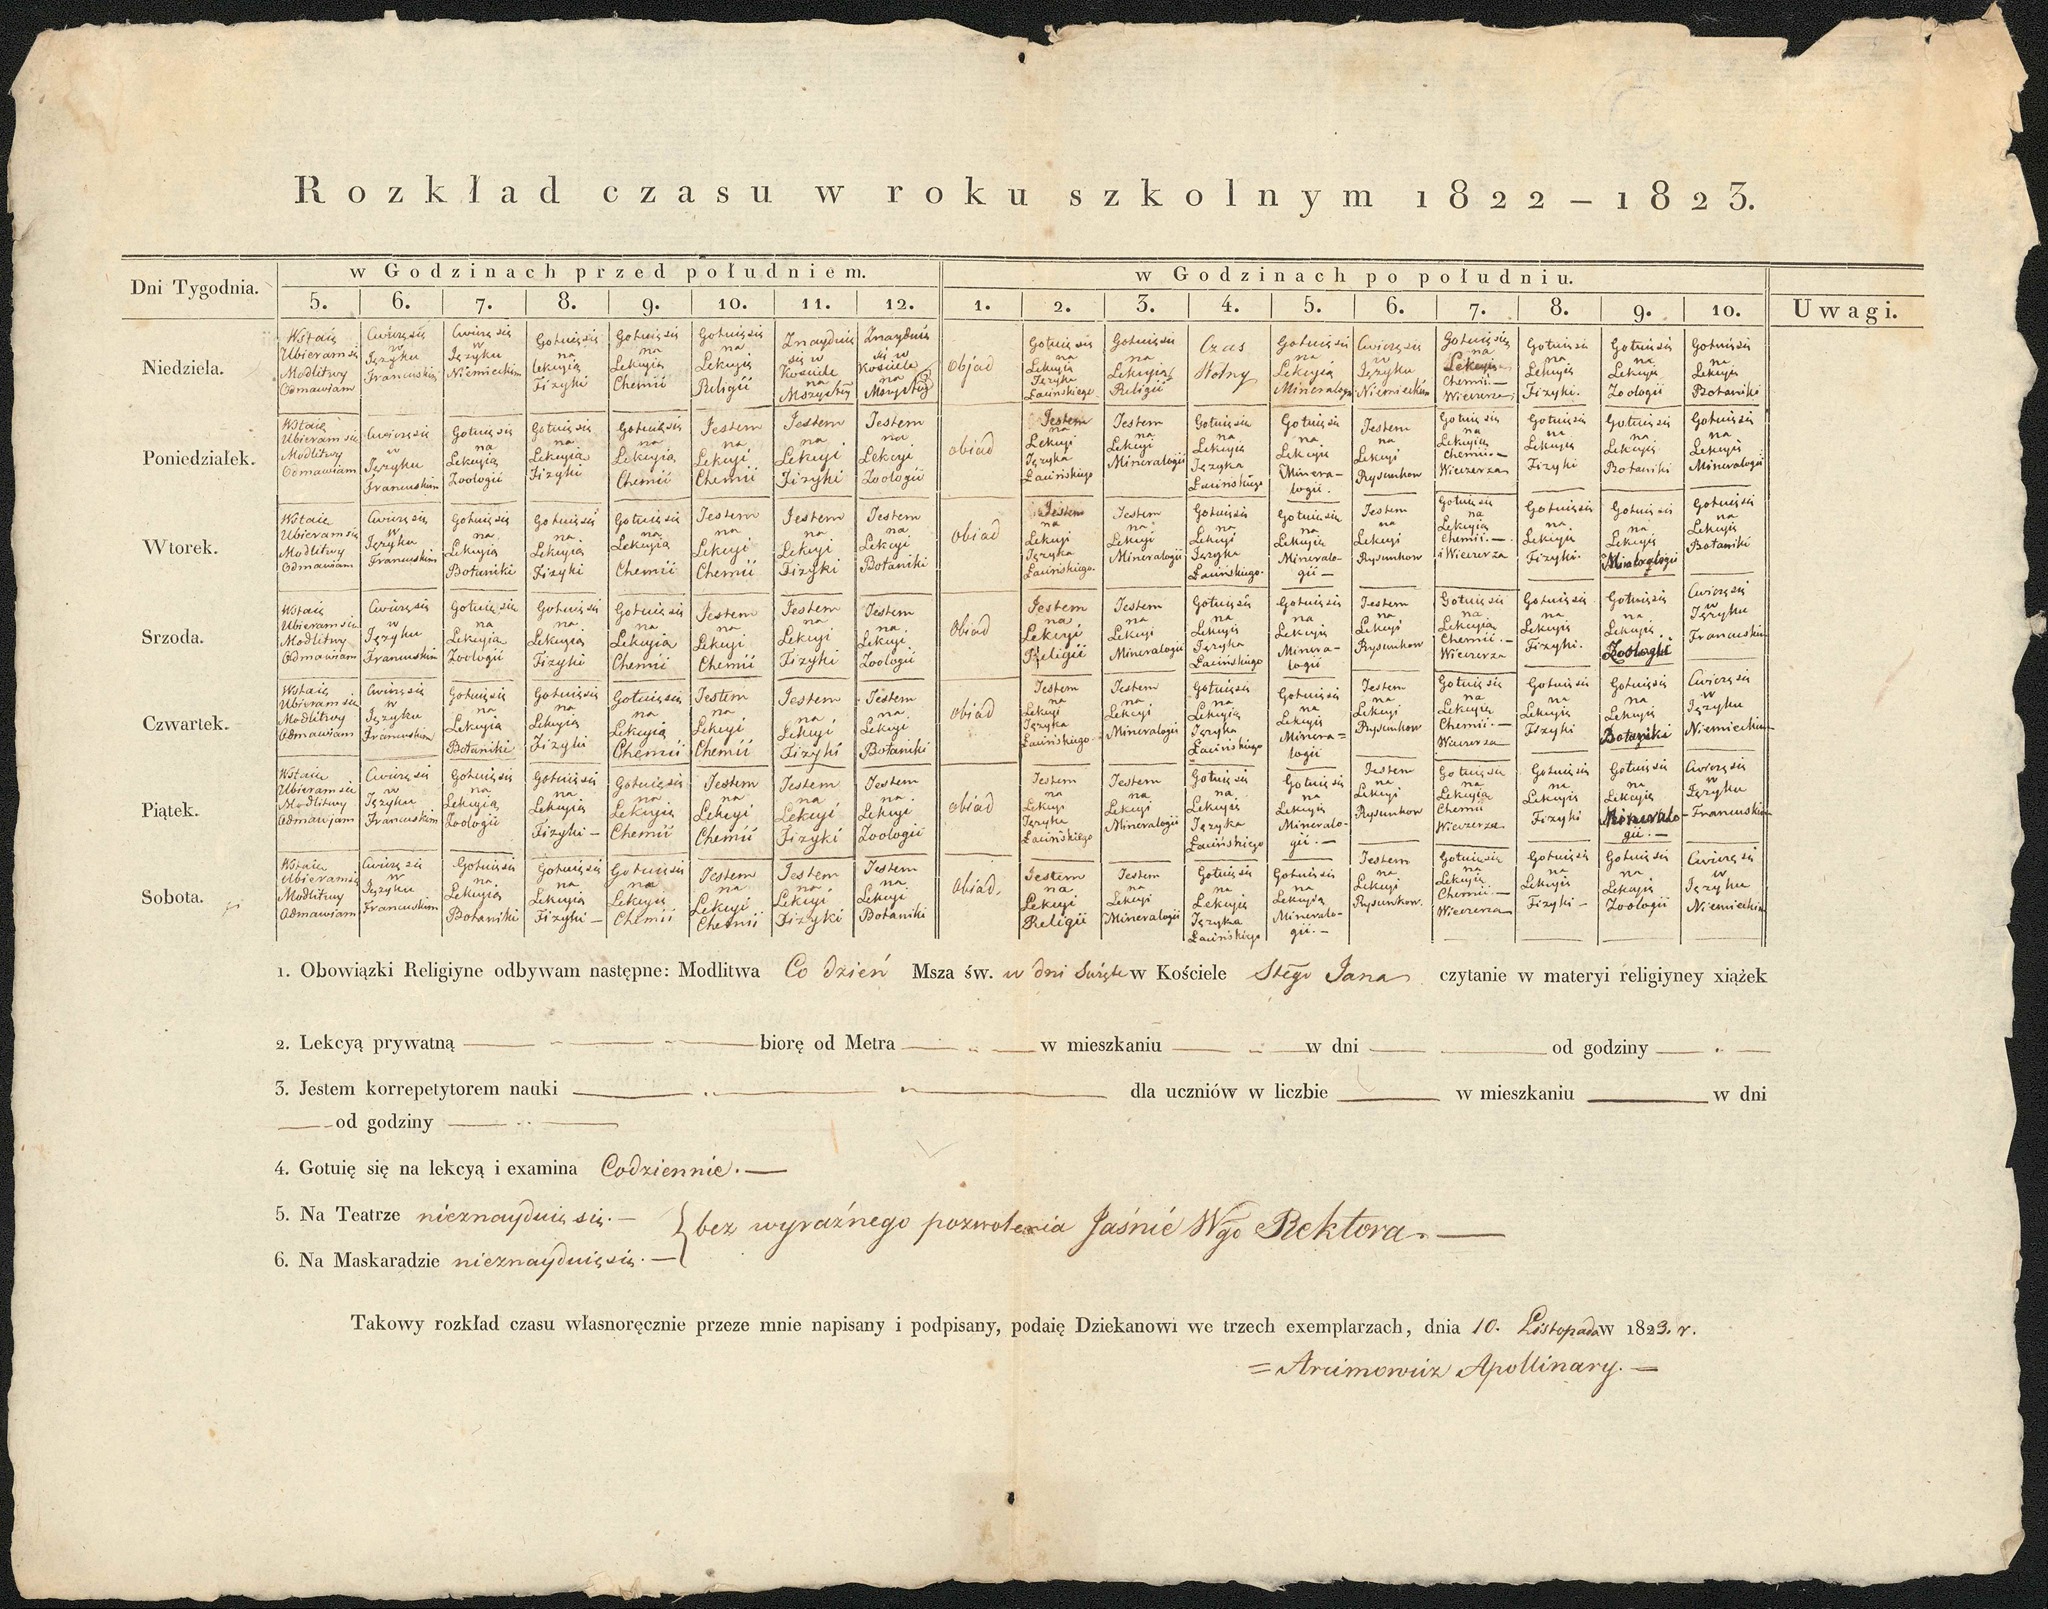 Rozkład czasu w roku szkolnym 1822 – 1823.
Dni Tygodnia. w Godzinach przed południem. w Godzinach po południu. Uwagi.
5. 6. 7. 8. 9. 10. 11. 12. 1. 2. 3. 4. 5. 6. 7. 8. 9. 10.
Niedziela.
Wstaię Ubieram się Modlitwy Odmawiam
Cwiczę się w Języku Francuskim
Cwiczę się w Języku Niemieckim
Gotuię się na lekcyią Fizyki
Gotuię się na Lekcyią Chemii
Gotuię się na Lekcyią Religii
Znayduię się w Kościele na Mszy świę
Znayduię się w Kościele na Mszy świę
Objad
Gotuię się na Lekcyią Języka Łacińskiego
Gotuię się na Lekcyią Religii
Czas Wolny
Gotuię się na Lekcyią Mineralogii
Cwiczę się w Języku Niemieckim
Gotuię się na Lekcyią Chemii.— Wieczerza
Gotuię się na Lekcyią Fizyki.
Gotuię się na Lekcyią Zoologii
Gotuię się na Lekcyią Botaniki
Poniedziałek.
Wstaię Ubieram się Modlitwy Odmawiam
Cwiczę się w Języku Francuskim
Gotuię się na Lekcyią Zoologii
Gotuię się na Lekcyią Fizyki
Gotuię się na Lekcyią Chemii
Jestem na Lekcyi Chemii
Jestem na Lekcyi Fizyki
Jestem na Lekcyi Zoologii
obiad
Jestem na Lekcyi Języka Łacińskiego
Jestem na Lekcyi Mineralogii
Gotuię się na Lekcyią Języka Łacińskiego
Gotuię się na Lekcyią Minera- logii.
Jestem na Lekcyi Rysunkow
Gotuię się na Lekcyią Chemii.— Wieczerza
Gotuię się na Lekcyią Fizyki
Gotuię się na Lekcyią Botaniki
Gotuię się na Lekcyią Mineralogii
Wtorek.
Wstaię Ubieram się Modlitwy Odmawiam
Cwiczę się w Języku Francuskim
Gotuię się na Lekcyią Botaniki
Gotuię się na Lekcyią Fizyki
Gotuię się na Lekcyią Chemii
Jestem na Lekcyi Chemii
Jestem na Lekcyi Fizyki
Jestem na Lekcyi Botaniki
Obiad
Jestem na Lekcyi Języka Łacińskiego.
Jestem na Lekcyi Mineralogii
Gotuię się na Lekcyią Języka Łacińskiego.
Gotuię się na Lekcyią Mineralo- gii—
Jestem na Lekcyi Rysunkow
Gotuię się na Lekcyią Chemii.— i Wieczerza
Gotuię się na Lekcyią Fizyki.
Gotuię się na Lekcyią Mineralogii
Gotuię się na Lekcyią Botaniki
Srzoda.
Wstaię Ubieram się Modlitwy Odmawiam
Cwiczę się w Języku Francuskim
Gotuię się na Lekcyią Zoologii
Gotuię się na Lekcyią Fizyki
Gotuię się na Lekcyią Chemii
Jestem na Lekcyi Chemii
Jestem na Lekcyi Fizyki
Jestem na Lekcyi Zoologii
Obiad
Jestem na Lekcyi Religii
Jestem na Lekcyi Mineralogii
Gotuię się na Lekcyią Języka Łacińskiego
Gotuię się na Lekcyią Minera- logii
Jestem na Lekcyi Rysunkow
Gotuię się na Lekcyią Chemii.— Wieczerza
Gotuię się na Lekcyią Fizyki.
Gotuię się na Lekcyią Zoologii
Cwiczę się w Języku Francuskim
Czwartek.
Wstaię Ubieram się Modlitwy Odmawiam
Cwiczę się w Języku Francuskim
Gotuię się na Lekcyią Botaniki
Gotuię się na Lekcyią Fizyki
Gotuię się na Lekcyią Chemii
Jestem na Lekcyi Chemii
Jestem na Lekcyi Fizyki
Jestem na Lekcyi Botaniki
Obiad
Jestem na Lekcyi Języka Łacińskiego.
Jestem na Lekcyi Mineralogii
Gotuię się na Lekcyią Języka Łacińskiego
Gotuię się na Lekcyią Minera= logii
Jestem na Lekcyi Rysunkow
Gotuię się na Lekcyią Chemii.— Wieczerza
Gotuię się na Lekcyią Fizyki
Gotuię się na Lekcyią Botaniki
Cwiczę się w Języku Niemieckim
Piątek.
Wstaię Ubieram się Modlitwy Odmawiam
Cwiczę się w Języku Francuskim
Gotuię się na Lekcyią Zoologii
Gotuię się na Lekcyią Fizyki—
Gotuię się na Lekcyią Chemii
Jestem na Lekcyi Chemii
Jestem na Lekcyi Fizyki
Jestem na Lekcyi Zoologii
Obiad
Jestem na Lekcyi Języka Łacińskiego
Jestem na Lekcyi Mineralogii
Gotuię się na Lekcyią Języka Łacińskiego
Gotuię się na Lekcyią Mineralo- gii.—
Jestem na Lekcyi Rysunkow
Gotuię się na Lekcyią Chemii Wieczerza
Gotuię się na Lekcyią Fizyki
Gotuię się na Lekcyią Mineralo- gii.—
Cwiczę się w Języku Francuskim
Sobota.
Wstaię Ubieram się Modlitwy Odmawiam
Cwiczę się w Języku Francuskim
Gotuię się na Lekcyią Botaniki
Gotuię się na Lekcyią Fizyki—
Gotuię się na Lekcyią Chemii
Jestem na Lekcyi Chemii
Jestem na Lekcyi Fizyki
Jestem na Lekcyi Botaniki
Obiad.
Jestem na Lekcyi Religii
Jestem na Lekcyi Mineralogii
Gotuię się na Lekcyią Języka Łacińskiego
Gotuię się na Lekcyią Mineralo- gii.—
Jestem na Lekcyi Rysunkow.
Gotuię się na Lekcyią Chemii.— Wieczerza
Gotuię się na Lekcyią Fizyki—
Gotuię się na Lekcyią Zoologii
Cwiczę się w Języku Niemieckim
1. Obowiązki Religiyne odbywam następne: Modlitwa Co dzień Msza św. w dni Święte w Kościele Stego Jana czytanie w materyi religiyney xiążek
2. Lekcyą prywatną biorę od Metra w mieszkaniu w dni od godziny
3. Jestem korrepetytorem nauki dla uczniów w liczbie w mieszkaniu w dni
od godziny
4. Gotuię się na lekcyą i examina Codziennie.—
5. Na Teatrze nieznayduię się.—
bez wyraźnego pozwolenia Jaśnie Wgo Rektora.—
6. Na Maskaradzie nieznayduię się.—
Takowy rozkład czasu własnoręcznie przeze mnie napisany i podpisany, podaię Dziekanowi we trzech exemplarzach, dnia 10. Listopada w 1823. r.
= Arcimowicz Apollinary.—